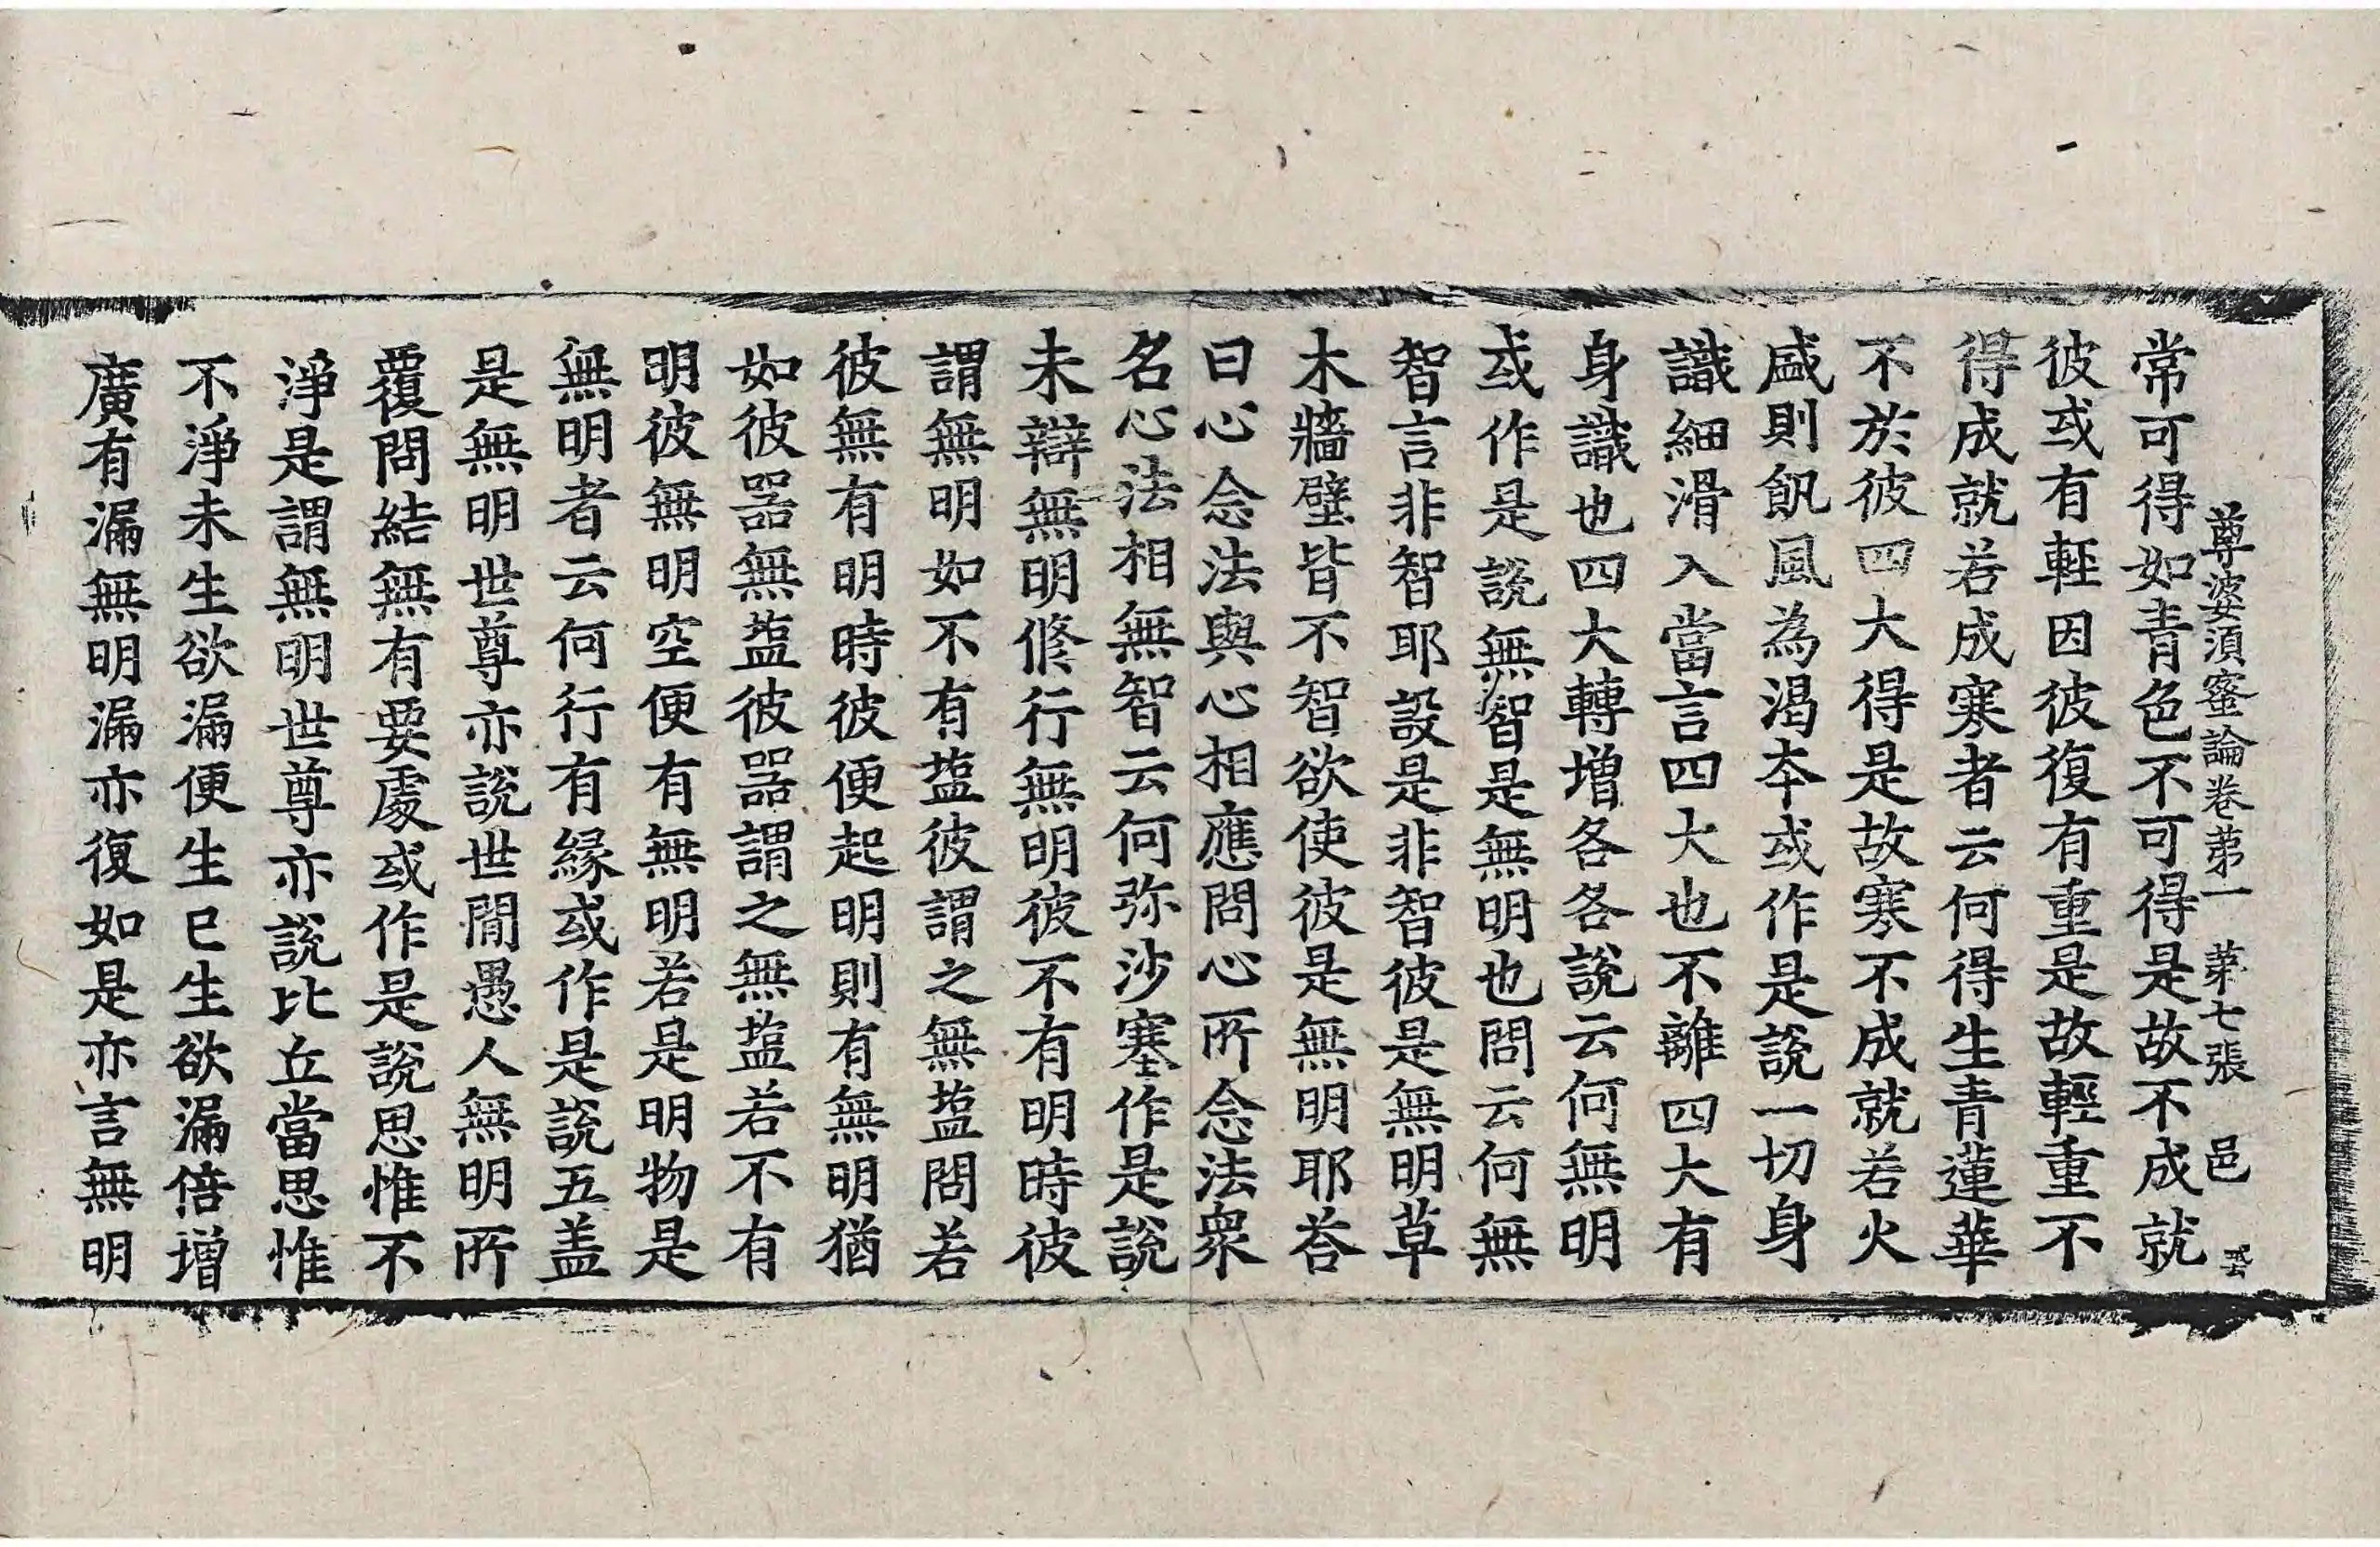 尊婆湏蜜論卷苐一 苐七張 邑
常可得如青色不可得是故不成就
彼或有輊因彼復有重是故輕重不
得成就若成寒者云何得生青蓮華
不於彼四大得是故寒不成就若火
盛則飢風為渇夲或作是說一切身
識細滑入當言四大也不離四大有
身識也四大轉增各各說云何無明
或作是說無智是無明也問云何無
智言非智智耶設是非智彼是無明草
木牆壁皆不智欲使彼是無明耶荅
曰心念法與心相應問心所念法衆
名心法相無智云何弥沙塞作是說
未辯無明修行無明彼不有明時彼
謂無明如不有塩彼謂之無塩問若
彼無有明時彼便起明則有無明猶
如彼器無塩彼器謂之無塩若不有
明彼無明空便有無明若是明物是
無明者云何行有緣或作是說五盖
是無明世尊亦說世閒愚人無明所
覆問結無有要處或作是說思惟不
淨是謂無明世尊亦說比丘當思惟
不淨未生欲漏便生已生欲漏倍增
廣有漏無明漏亦復如是亦言無明